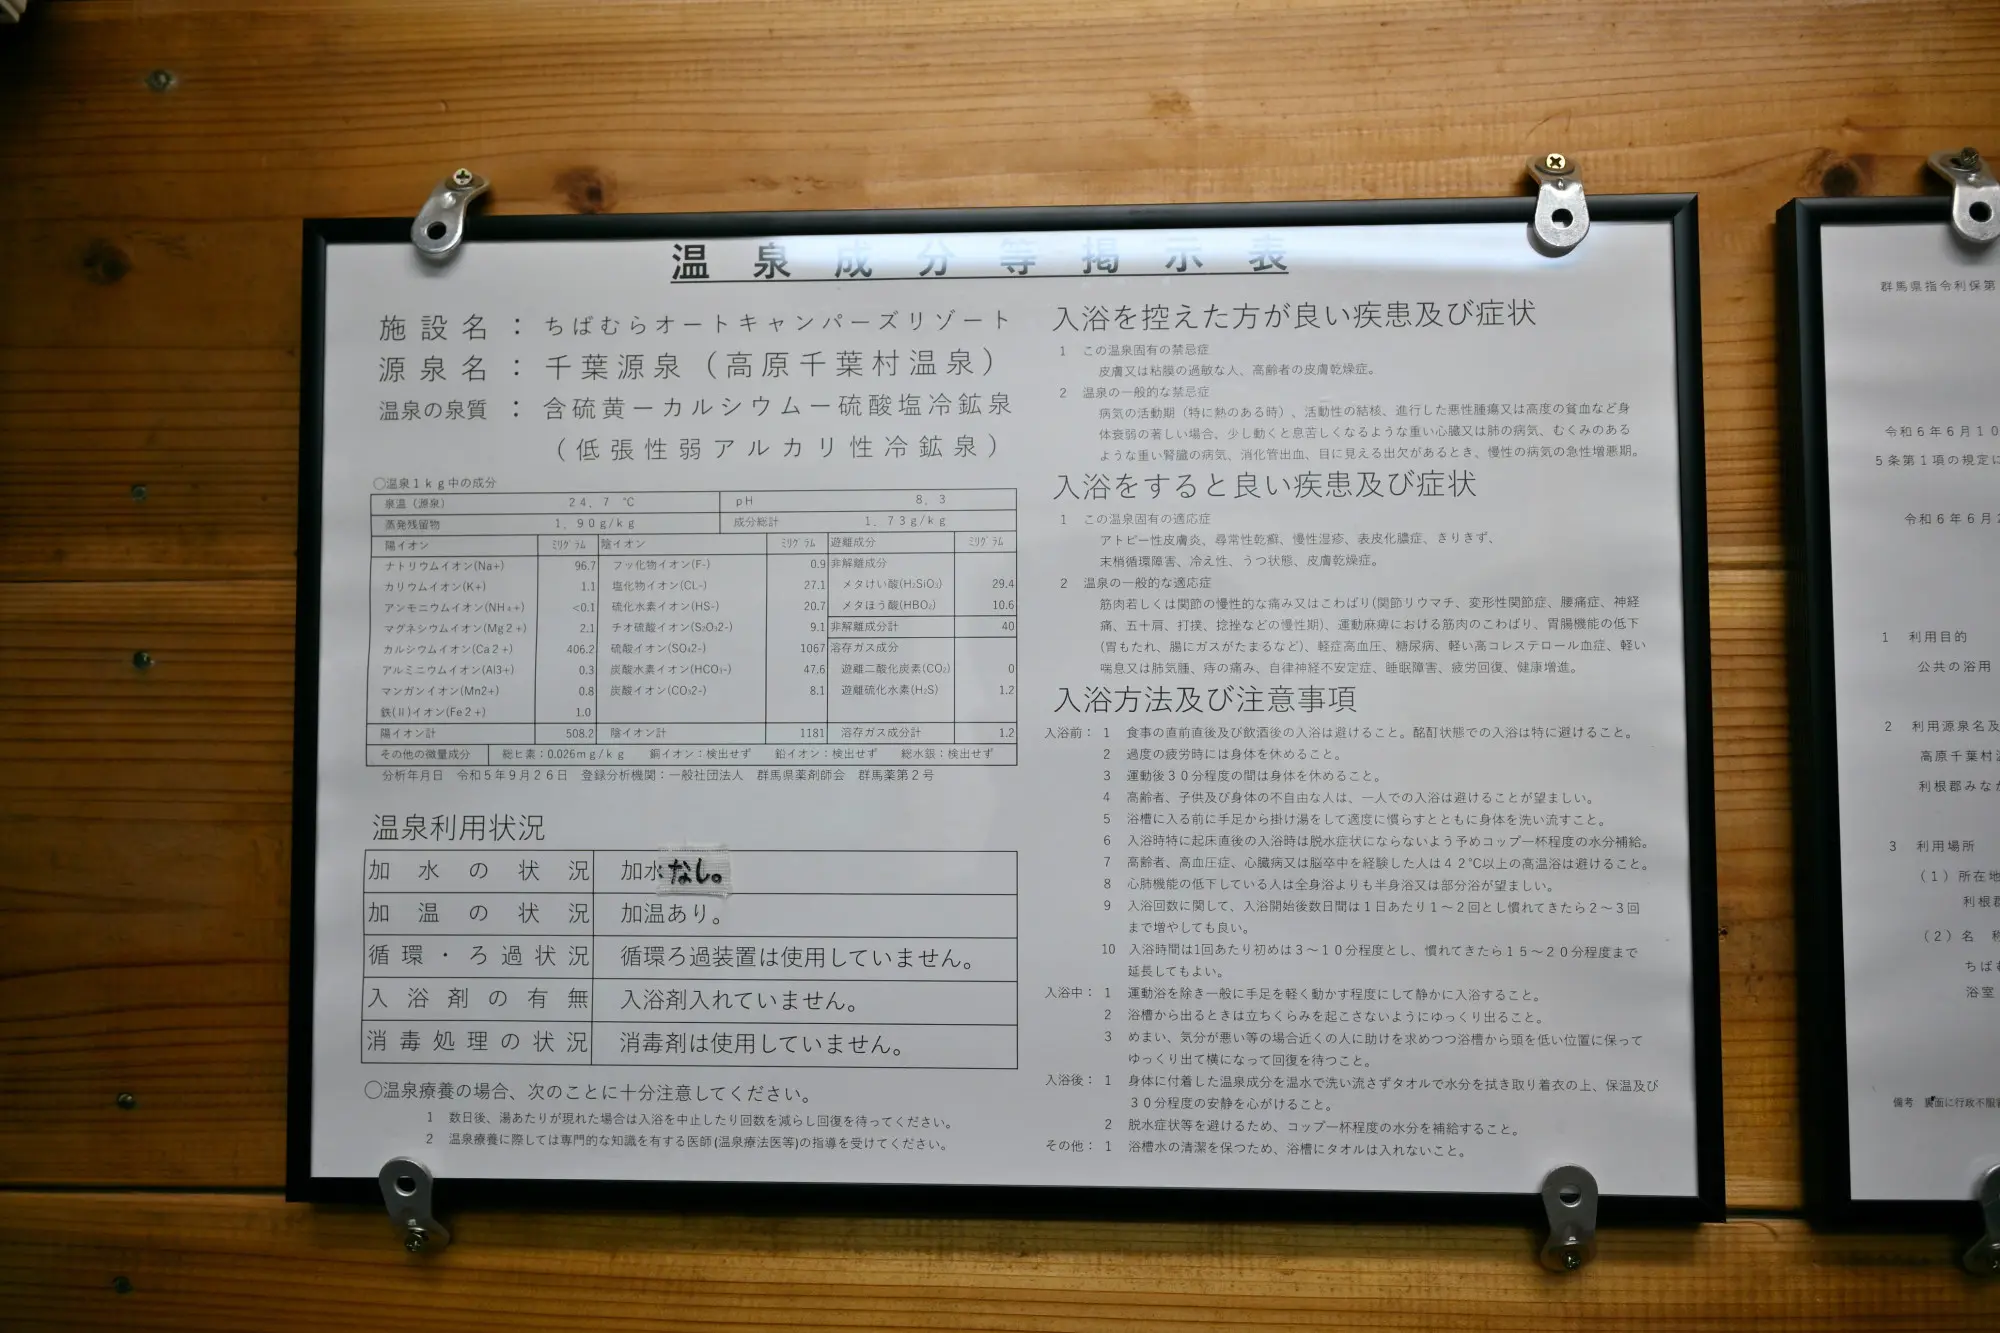 温泉成分等掲示表
施設名：ちばむらオートキャンパーズリゾート
源泉名：千葉源泉（高原千葉村温泉）
温泉の泉質：含硫黄ーカルシウムー硫酸塩冷鉱泉
（低張性弱アルカリ性冷鉱泉）
○温泉1kg中の成分
泉温（源泉） 24．7 ℃ pH 8．3
蒸発残留物 1．90g/kg 成分総計 1．73g/kg
陽イオン ﾐﾘｸﾞﾗﾑ 陰イオン ﾐﾘｸﾞﾗﾑ 遊離成分 ﾐﾘｸﾞﾗﾑ
ナトリウムイオン(Na+) 96.7 フッ化物イオン(F-) 0.9 非解離成分
カリウムイオン(K+) 1.1 塩化物イオン(CL-) 27.1 メタけい酸(H₂SiO₃) 29.4
アンモニウムイオン(NH₄+) <0.1 硫化水素イオン(HS-) 20.7 メタほう酸(HBO₂) 10.6
マグネシウムイオン(Mg2+) 2.1 チオ硫酸イオン(S₂O₃2-) 9.1 非解離成分計 40
カルシウムイオン(Ca2+) 406.2 硫酸イオン(SO₄2-) 1067 溶存ガス成分
アルミニウムイオン(Al3+) 0.3 炭酸水素イオン(HCO₃-) 47.6 遊離二酸化炭素(CO₂) 0
マンガンイオン(Mn2+) 0.8 炭酸イオン(CO₃2-) 8.1 遊離硫化水素(H₂S) 1.2
鉄(Ⅱ)イオン(Fe2+) 1.0
陽イオン計 508.2 陰イオン計 1181 溶存ガス成分計 1.2
その他の微量成分 総ヒ素：0.026mg/kg 銅イオン：検出せず 鉛イオン：検出せず 総水銀：検出せず
分析年月日 令和5年9月26日 登録分析機関：一般社団法人 群馬県薬剤師会 群馬薬第2号
温泉利用状況
加水の状況 加水なし。
加温の状況 加温あり。
循環・ろ過状況 循環ろ過装置は使用していません。
入浴剤の有無 入浴剤入れていません。
消毒処理の状況 消毒剤は使用していません。
○温泉療養の場合、次のことに十分注意してください。
1 数日後、湯あたりが現れた場合は入浴を中止したり回数を減らし回復を待ってください。
2 温泉療養に際しては専門的な知識を有する医師(温泉療法医等)の指導を受けてください。
入浴を控えた方が良い疾患及び症状
1 この温泉固有の禁忌症
皮膚又は粘膜の過敏な人、高齢者の皮膚乾燥症。
2 温泉の一般的な禁忌症
病気の活動期（特に熱のある時）、活動性の結核、進行した悪性腫瘍又は高度の貧血など身
体衰弱の著しい場合、少し動くと息苦しくなるような重い心臓又は肺の病気、むくみのある
ような重い腎臓の病気、消化管出血、目に見える出欠があるとき、慢性の病気の急性増悪期。
入浴をすると良い疾患及び症状
1 この温泉固有の適応症
アトピー性皮膚炎、尋常性乾癬、慢性湿疹、表皮化膿症、きりきず、
末梢循環障害、冷え性、うつ状態、皮膚乾燥症。
2 温泉の一般的な適応症
筋肉若しくは関節の慢性的な痛み又はこわばり(関節リウマチ、変形性関節症、腰痛症、神経
痛、五十肩、打撲、捻挫などの慢性期)、運動麻痺における筋肉のこわばり、胃腸機能の低下
(胃もたれ、腸にガスがたまるなど)、軽症高血圧、糖尿病、軽い高コレステロール血症、軽い
喘息又は肺気腫、痔の痛み、自律神経不安定症、睡眠障害、疲労回復、健康増進。
入浴方法及び注意事項
入浴前： 1 食事の直前直後及び飲酒後の入浴は避けること。酩酊状態での入浴は特に避けること。
2 過度の疲労時には身体を休めること。
3 運動後30分程度の間は身体を休めること。
4 高齢者、子供及び身体の不自由な人は、一人での入浴は避けることが望ましい。
5 浴槽に入る前に手足から掛け湯をして適度に慣らすとともに身体を洗い流すこと。
6 入浴時特に起床直後の入浴時は脱水症状にならないよう予めコップ一杯程度の水分補給。
7 高齢者、高血圧症、心臓病又は脳卒中を経験した人は42℃以上の高温浴は避けること。
8 心肺機能の低下している人は全身浴よりも半身浴又は部分浴が望ましい。
9 入浴回数に関して、入浴開始後数日間は1日あたり1～2回とし慣れてきたら2～3回
まで増やしても良い。
10 入浴時間は1回あたり初めは3～10分程度とし、慣れてきたら15～20分程度まで
延長してもよい。
入浴中： 1 運動浴を除き一般に手足を軽く動かす程度にして静かに入浴すること。
2 浴槽から出るときは立ちくらみを起こさないようにゆっくり出ること。
3 めまい、気分が悪い等の場合近くの人に助けを求めつつ浴槽から頭を低い位置に保って
ゆっくり出て横になって回復を待つこと。
入浴後： 1 身体に付着した温泉成分を温水で洗い流さずタオルで水分を拭き取り着衣の上、保温及び
30分程度の安静を心がけること。
2 脱水症状等を避けるため、コップ一杯程度の水分を補給すること。
その他： 1 浴槽水の清潔を保つため、浴槽にタオルは入れないこと。
群馬県指令利保第
令和6年6月10
5条第1項の規定に
令和6年6月
1 利用目的
公共の浴用
2 利用源泉名及
高原千葉村
利根郡みなか
3 利用場所
（1）所在地
利根郡
（2）名 称
ちばむ
浴室
備考 裏面に行政不服